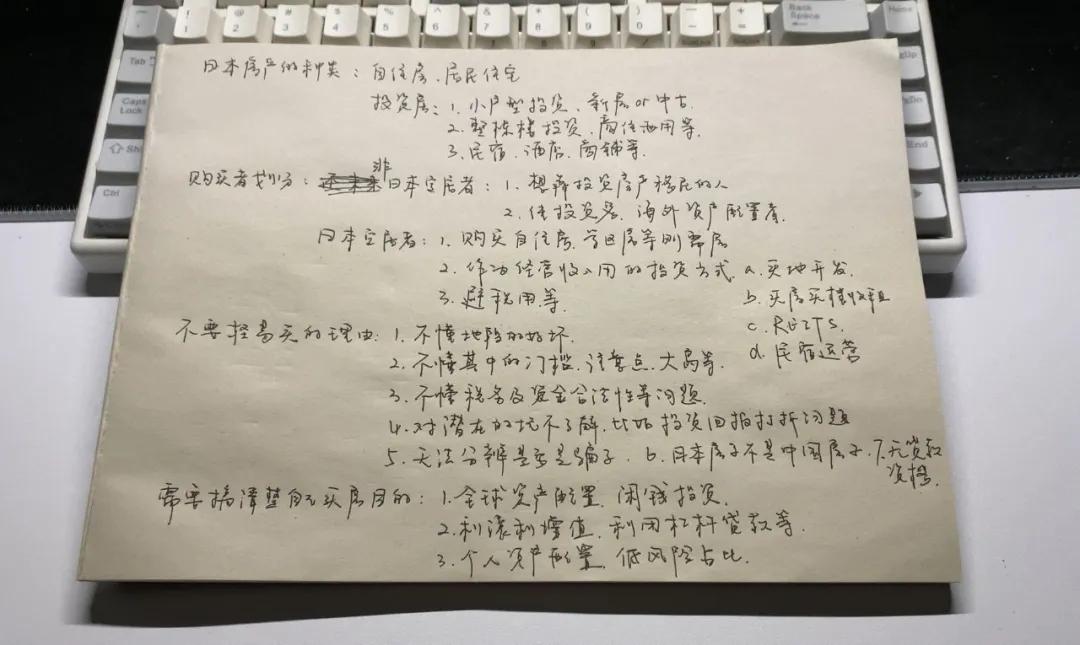 日本房产的种类：自住房、居民住宅
投资房：1. 小户型投资、新房or中古
2. 整栋楼投资、商住两用等.
3. 民宿、酒店、商铺等.
购买者划分：非日本定居者：1. 想靠投资房产移民的人
2. 纯投资客、海外资产配置者.
日本定居者：1. 购买自住房、学区房等刚需房
2. 作为经营收入用的投资方式. a. 买地开发.
3. 避税用等. b. 买房买楼收租
c. REITS.
d. 民宿运营
不要轻易买的理由：1. 不懂地段的好坏.
2. 不懂其中的门槛、注意点、大局等.
3. 不懂税务及资金合法性等问题.
4. 对潜在的坑不了解，比如投资回报打折问题
5. 无法分辨是否是骗子. 6. 日本房子不是中国房子. 7. 无贷款
资格.
需要搞清楚自己买房目的：1. 全球资产配置、闲钱投资.
2. 利滚利增值、利用杠杆贷款等.
3. 个人资产配置、低风险占比.
Tab
Caps
Lock
Shi
Ctrl
Back
Space
Home
PgUp
PgDn
End